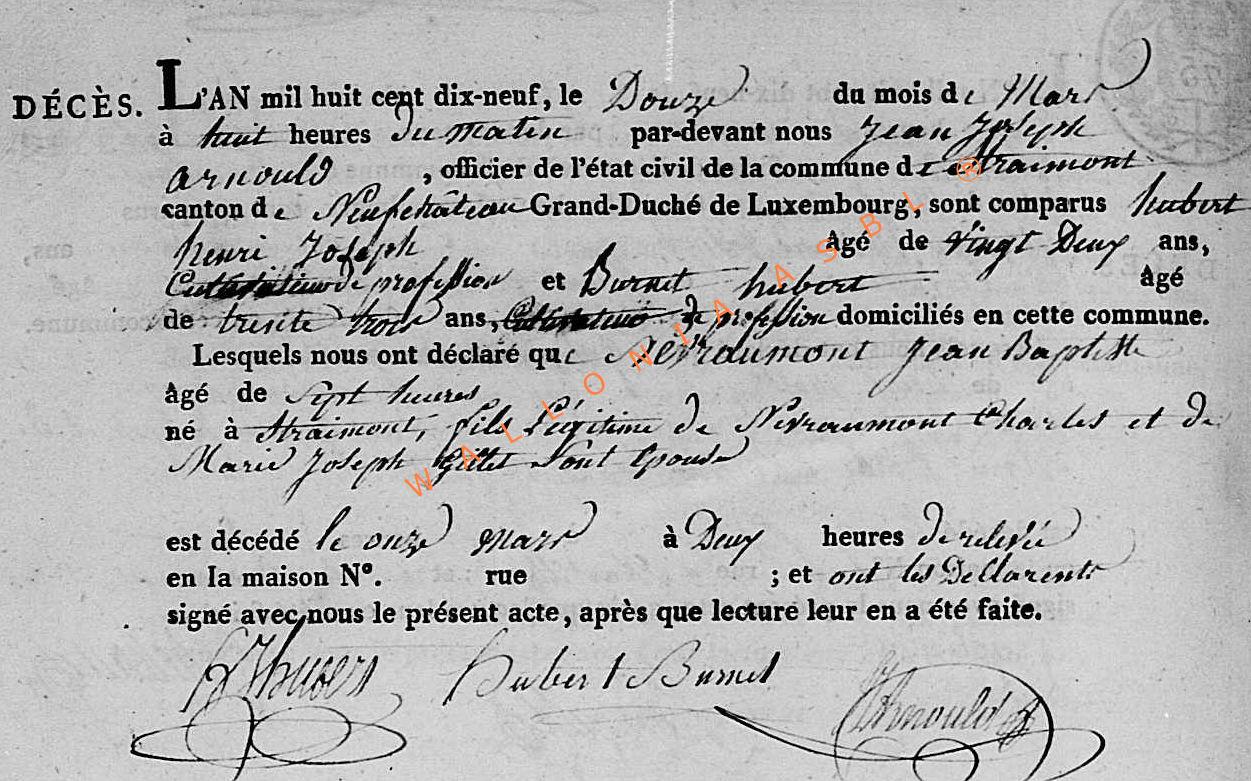 DÉCÈS. L'AN mil huit cent dix-neuf, le Douze du mois de Mars
à huit heures du matin par-devant nous Jean Joseph
arnould, officier de l'état civil de la commune de Straimont
canton de Neufchâteau Grand-Duché de Luxembourg, sont comparus hubert
henri Joseph âgé de vingt Deux ans,
Cultivateur de profession et Burnet hubert âgé
de trente trois ans, Cultivateur de profession domiciliés en cette commune.
Lesquels nous ont déclaré que Névraumont Jean Baptiste
âgé de Sept heures
né à Straimont, fils Légitime de Névraumont Charles et de
Marie Joseph Gillet Sont Epouse
est décédé le onze mars à Deux heures de relevé
en la maison N°. rue ; et ont les Declarents
signé avec nous le présent acte, après que lecture leur en a été faite.
Hubert Burnet
Arnould
WALLONIA ASBL ®